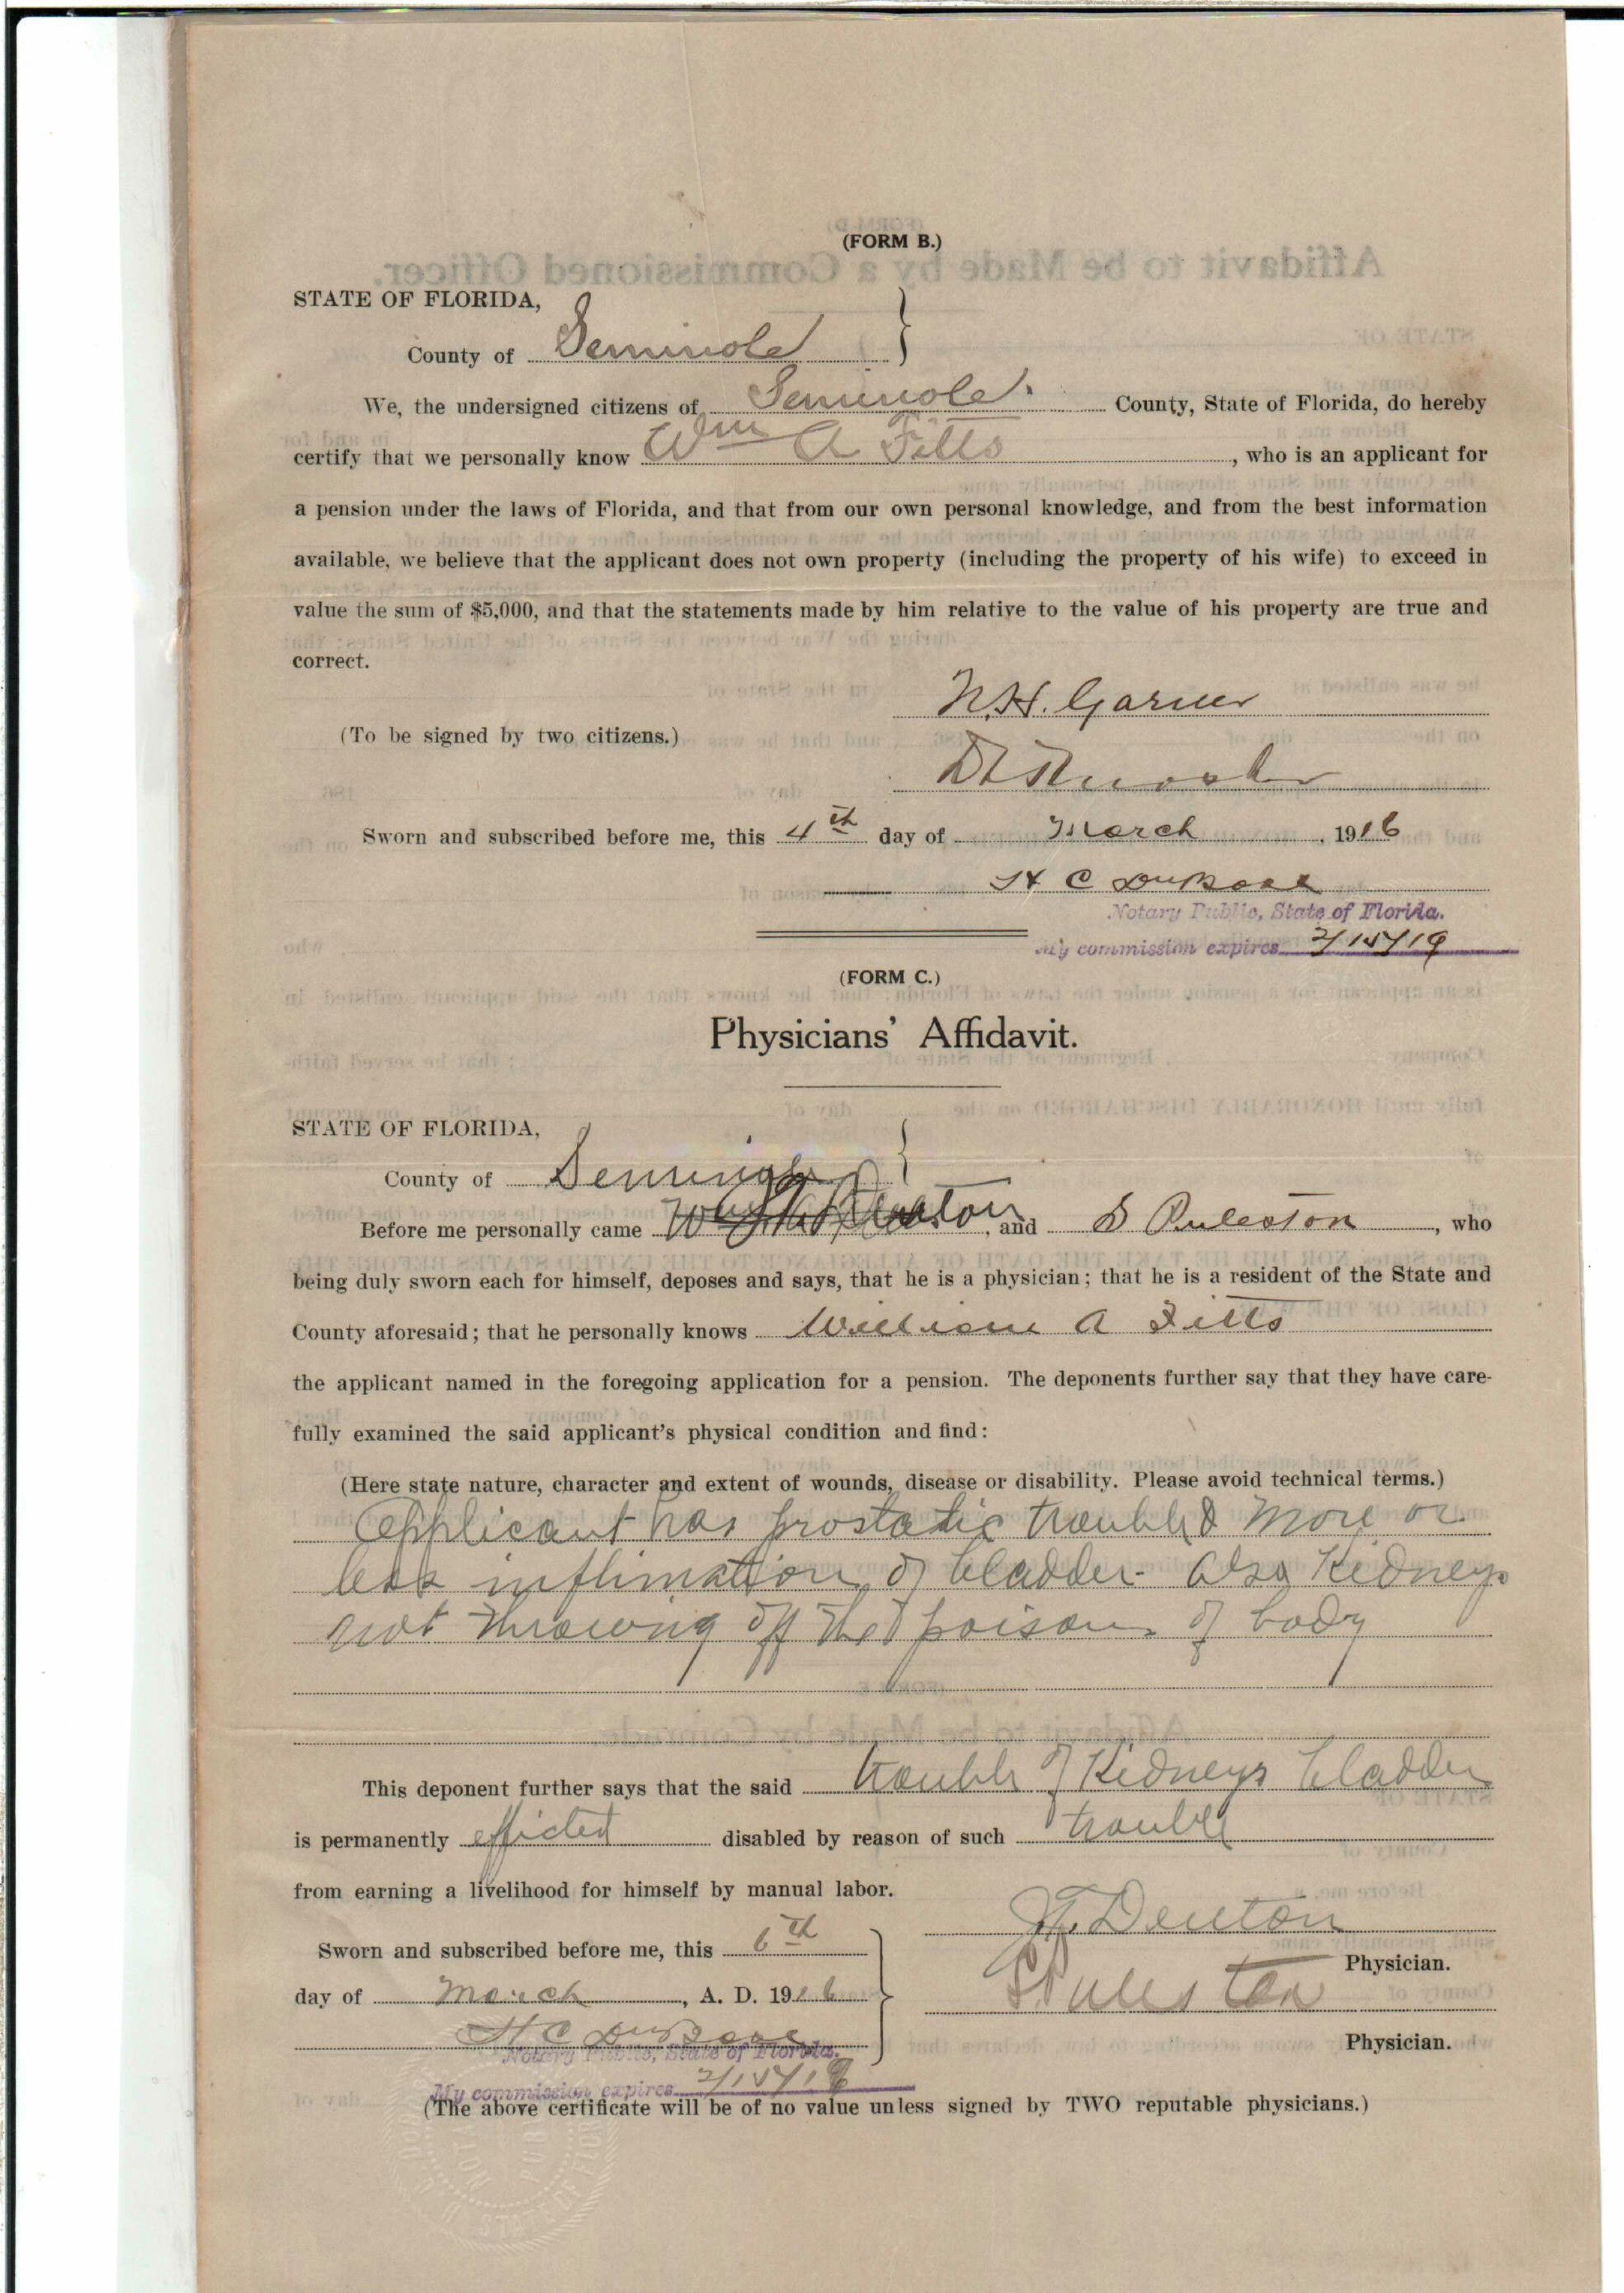 (FORM B.)
STATE OF FLORIDA,
County of Seminole
We, the undersigned citizens of Seminole County, State of Florida, do hereby
certify that we personally know Wm A Fitts, who is an applicant for
a pension under the laws of Florida, and that from our own personal knowledge, and from the best information
available, we believe that the applicant does not own property (including the property of his wife) to exceed in
value the sum of $5,000, and that the statements made by him relative to the value of his property are true and
correct.
N.H. Garner
(To be signed by two citizens.)
Sworn and subscribed before me, this 4th day of March, 1916
H C DuBose
Notary Public, State of Florida.
My commission expires 2/15/19
(FORM C.)
Physicians' Affidavit.
STATE OF FLORIDA,
County of Seminole
Before me personally came and S Puleston, who
being duly sworn each for himself, deposes and says, that he is a physician; that he is a resident of the State and
County aforesaid; that he personally knows William A Fitts
the applicant named in the foregoing application for a pension. The deponents further say that they have care-
fully examined the said applicant's physical condition and find:
(Here state nature, character and extent of wounds, disease or disability. Please avoid technical terms.)
Applicant has prostatic trouble & more or
less inflimation of bladder. also Kidneys
not throwing off the poison of body
This deponent further says that the said trouble of Kidneys bladder
is permanently efficted disabled by reason of such trouble
from earning a livelihood for himself by manual labor.
Denton
Sworn and subscribed before me, this 6th
Physician.
day of March, A. D. 1916
S Puleston
H C DuBose
Physician.
Notary Public, State of Florida.
My commission expires 2/15/19
(The above certificate will be of no value unless signed by TWO reputable physicians.)